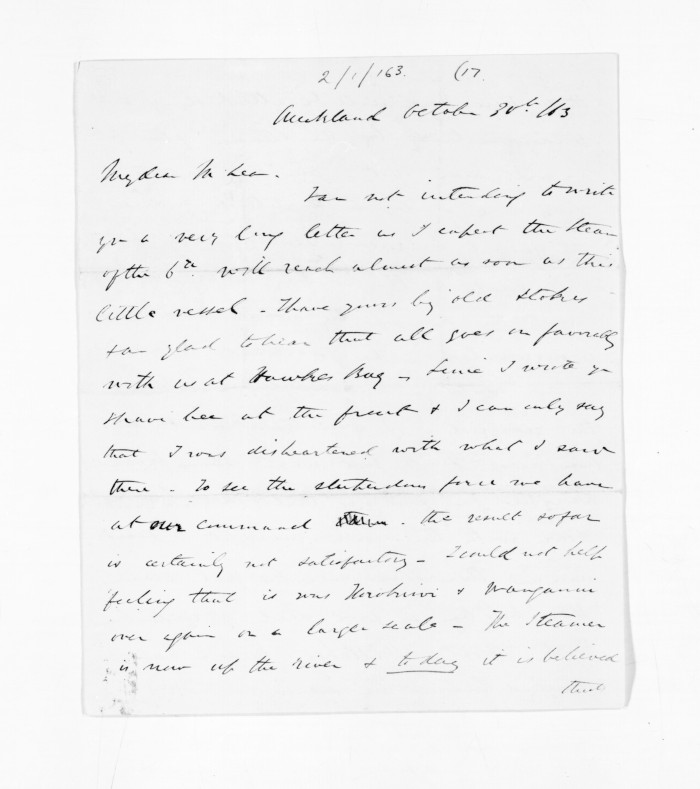 2/1/163. (17.
Auckland October 30th /63
My dear McLean.
I am not intending to write
you a very long letter as I expect the steam
of the 6th will reach almost as soon as this
little vessel - I have yours by old Stokes
& am glad to hear that all goes on favorably
with us at Hawkes Bay - Since I wrote you
I have bee at the front & I can only say
that I was disheartened with what I saw
there - To see the stupendous force we have
at our command . the result so far
is certainly not satisfactory - I could not help
feeling that is was & Wanganui
over again on a larger scale - The Steamer
is now up the river & to day it is believed
that